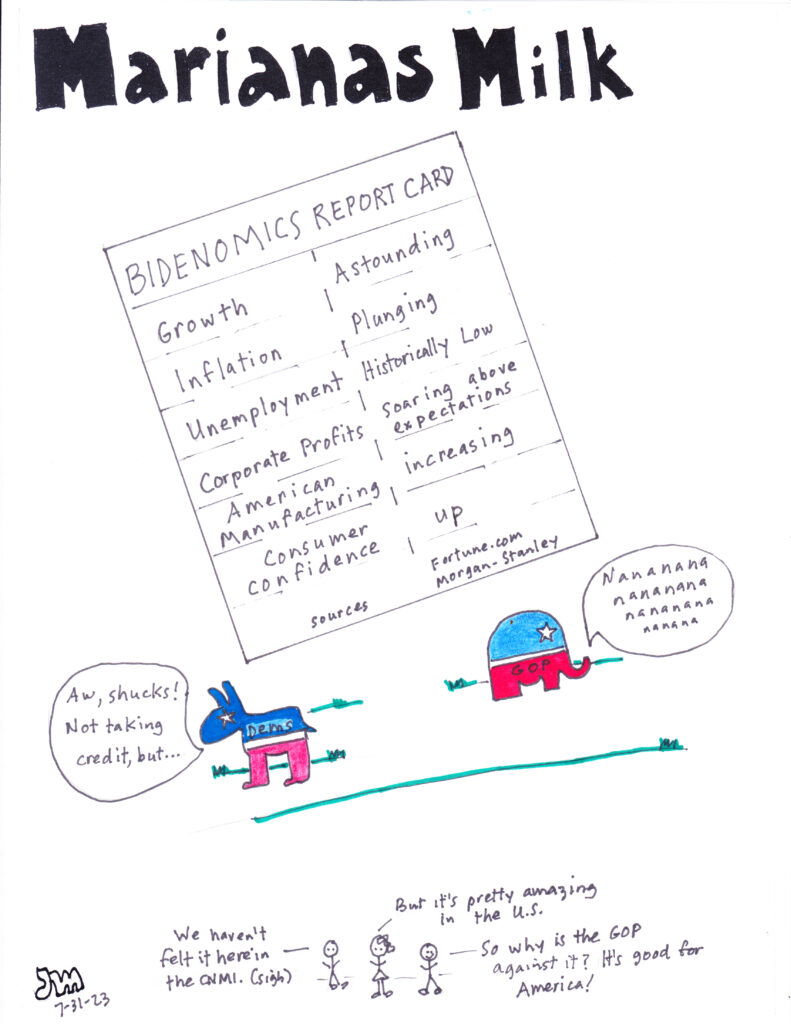 Marianas Milk
BIDENOMICS REPORT CARD
Growth Astounding
Inflation Plunging
Unemployment Historically Low
Corporate Profits soaring above
expectations
American
Manufacturing increasing
Consumer
confidence up
sources Fortune.com
Morgan-Stanley
Nananana
nananana
nananana
nanana
GOP
Aw, shucks!
Not taking
credit, but...
Dems
But it's pretty amazing
in the U.S.
We haven't
felt it here in
the CNMI. (sigh)
So why is the GOP
against it? It's good for
America!
JM
7-31-23